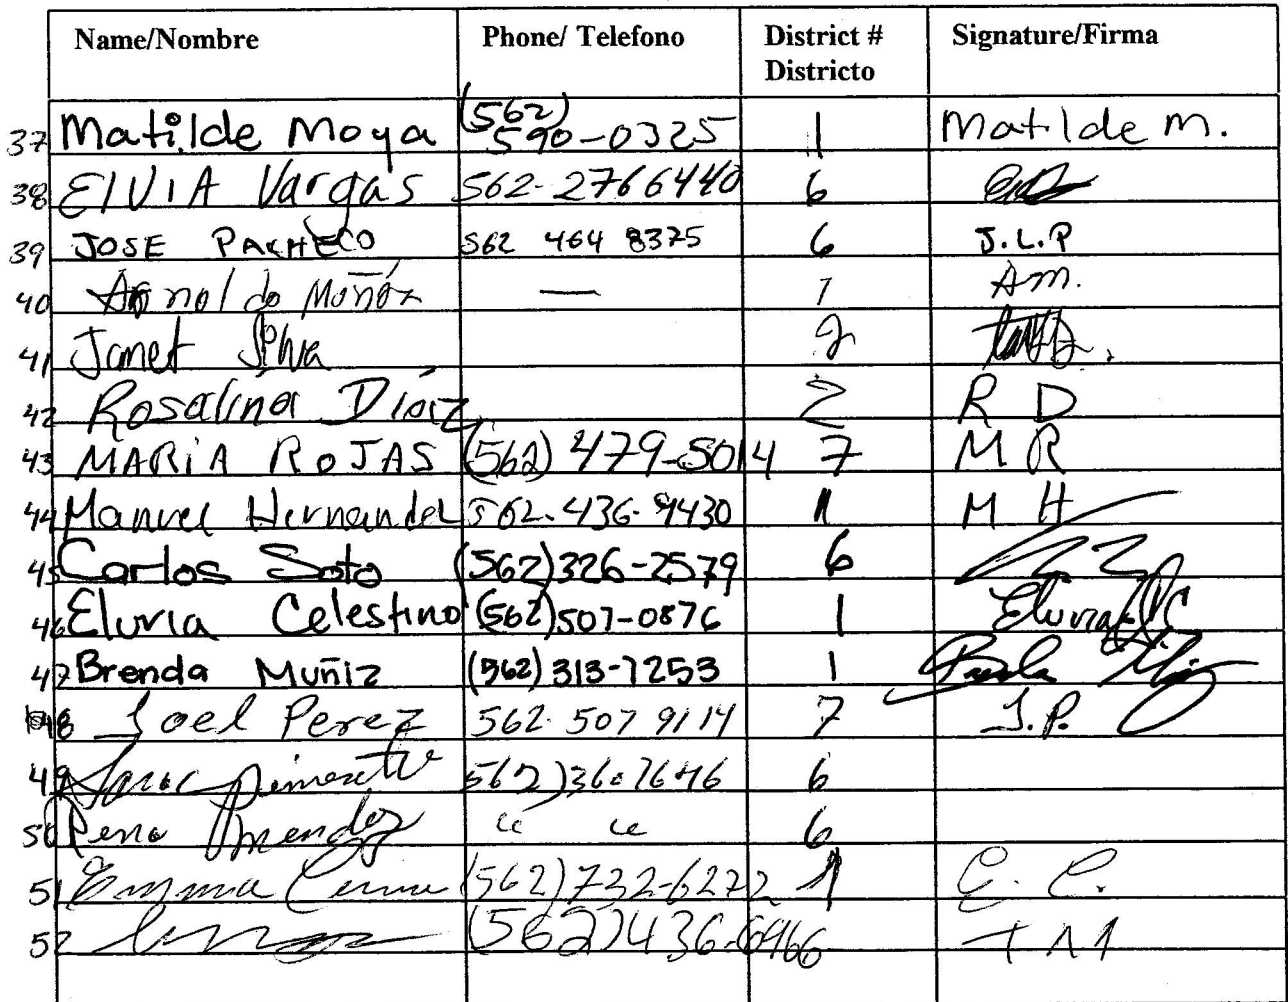 Name/Nombre Phone/ Telefono District # Signature/Firma
Districto
37 Matilde Moya (562) 590-0325 1 Matilde M.
38 ElVIA Vargas 562-2766440 6
39 JOSE PACHECO 562 464 8375 6 J.L.P
40 Arnoldo Muñóz — 7 Am.
41 Janet Silva 2
42 Rosalina Díaz 2 R D
43 MARiA ROJAS (562) 479-5014 7 M R
44 Manuel Hernandez 562-436-9430 1 M H
45 Carlos Soto (562)326-2579 6
46 Eluvia Celestino (562)507-0876 1 Eluvia C
47 Brenda Muñiz (562) 313-7253 1 Brenda Muñiz
48 Joel Perez 562-507 9114 7 J.P.
49 562)36 7646 6
50 Mendez " " 6
51 Emma (562)732-6272 1 E. C.
52 (562)436-6966